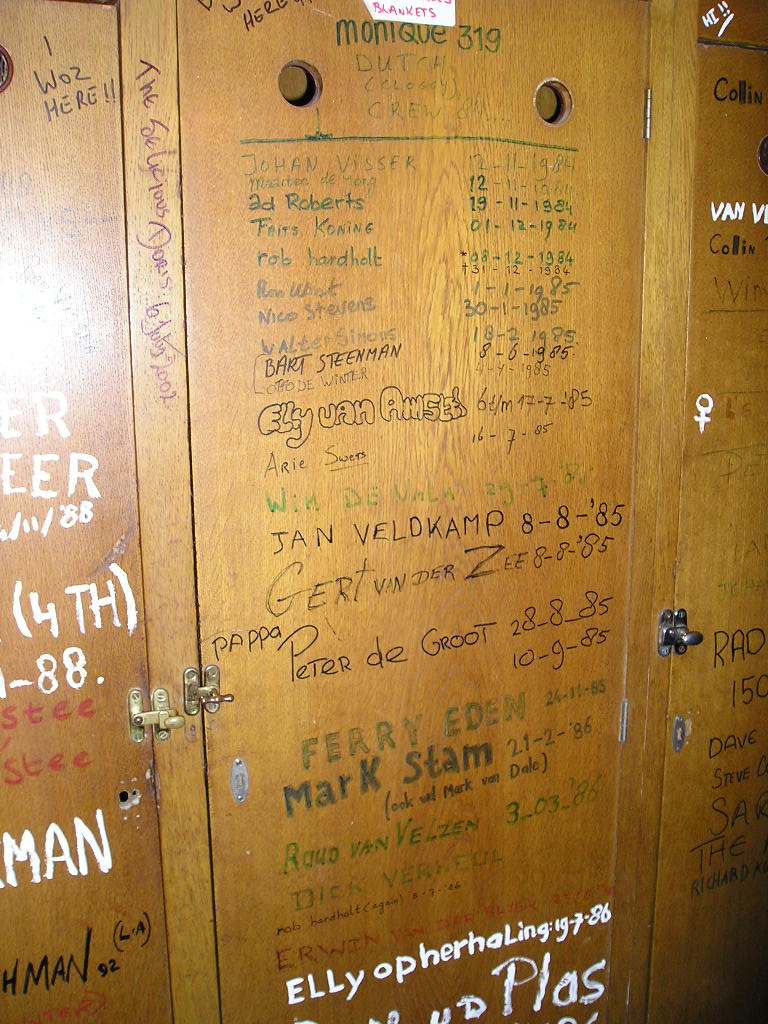 HERE!!
BLANKETS
HI!!
I
WOZ
HERE!!
The Delicious Doris: 6 July 2002
ER
EER
/11/'88
(4TH)
1-88.
stee
stee
MAN
HMAN 92
(L.A)
monique 319
DUTCH
(CLOGGY)
CREW 84
JOHAN VISSER 12-11-1984
Maarten de Jong 12-11-1984
ad Roberts 19-11-1984
Frits Koning 01-12-1984
rob hardholt *08-12-1984
+31-12-1984
1-1-1985
Nico Stevens 30-1-1985
Walter Simons 18-2 1985
BART STEENMAN 8-6-1985.
OTTO DE WINTER 4-4-1985
Elly van Amstel 6t/m 17-7-'85
Arie Swets 16-7-85
WIM DE 29-7-
JAN VELDKAMP 8-8-'85
GERT VAN DER ZEE 8-8-'85
PAPPA PETER de GROOT 28-8-85
10-9-85
FERRY EDEN 24-11-85
Mark Stam 21-2-'86
(ook wel Mark van Dale)
RUUD VAN VELZEN 3_03_'86
DICK VERKEUL
rob hardholt (again) 5-7-'86
ERWIN VAN DER
ELLY opherhaling: 19-7-86
Plas
Collin
VAN VE
Collin
♀
RAD
150
DAVE
STEVE
SAR
THE
RICHARD